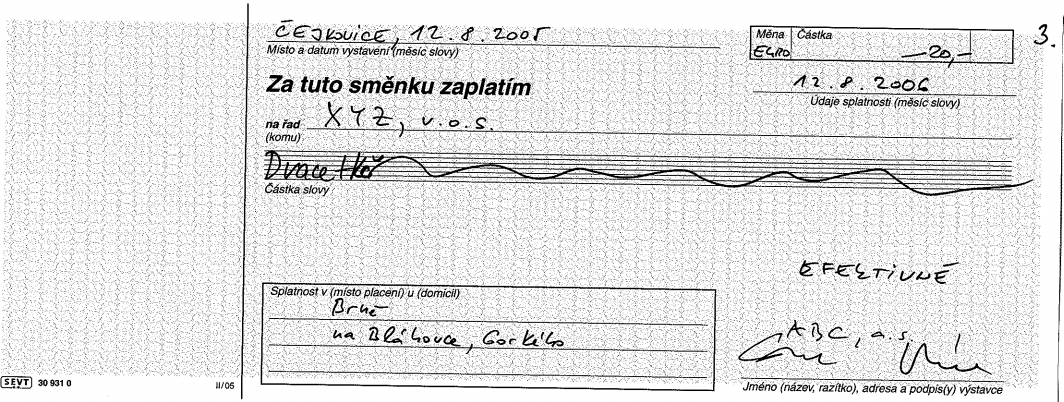 ČEJKOVICE, 12.8.2005
Místo a datum vystavení (měsíc slovy)
Měna Částka
EURO —20,—
3.
Za tuto směnku zaplatím
12.8.2006
Údaje splatnosti (měsíc slovy)
na řad XYZ, v.o.s.
(komu)
Dvacet
Částka slovy
EFEKTIVNĚ
Splatnost v (místo placení) u (domicil)
Brně
na Bláhovce, Gorkého
ABC, a.s.
Jméno (název, razítko), adresa a podpis(y) výstavce
SEVT 30 931 0
II/05